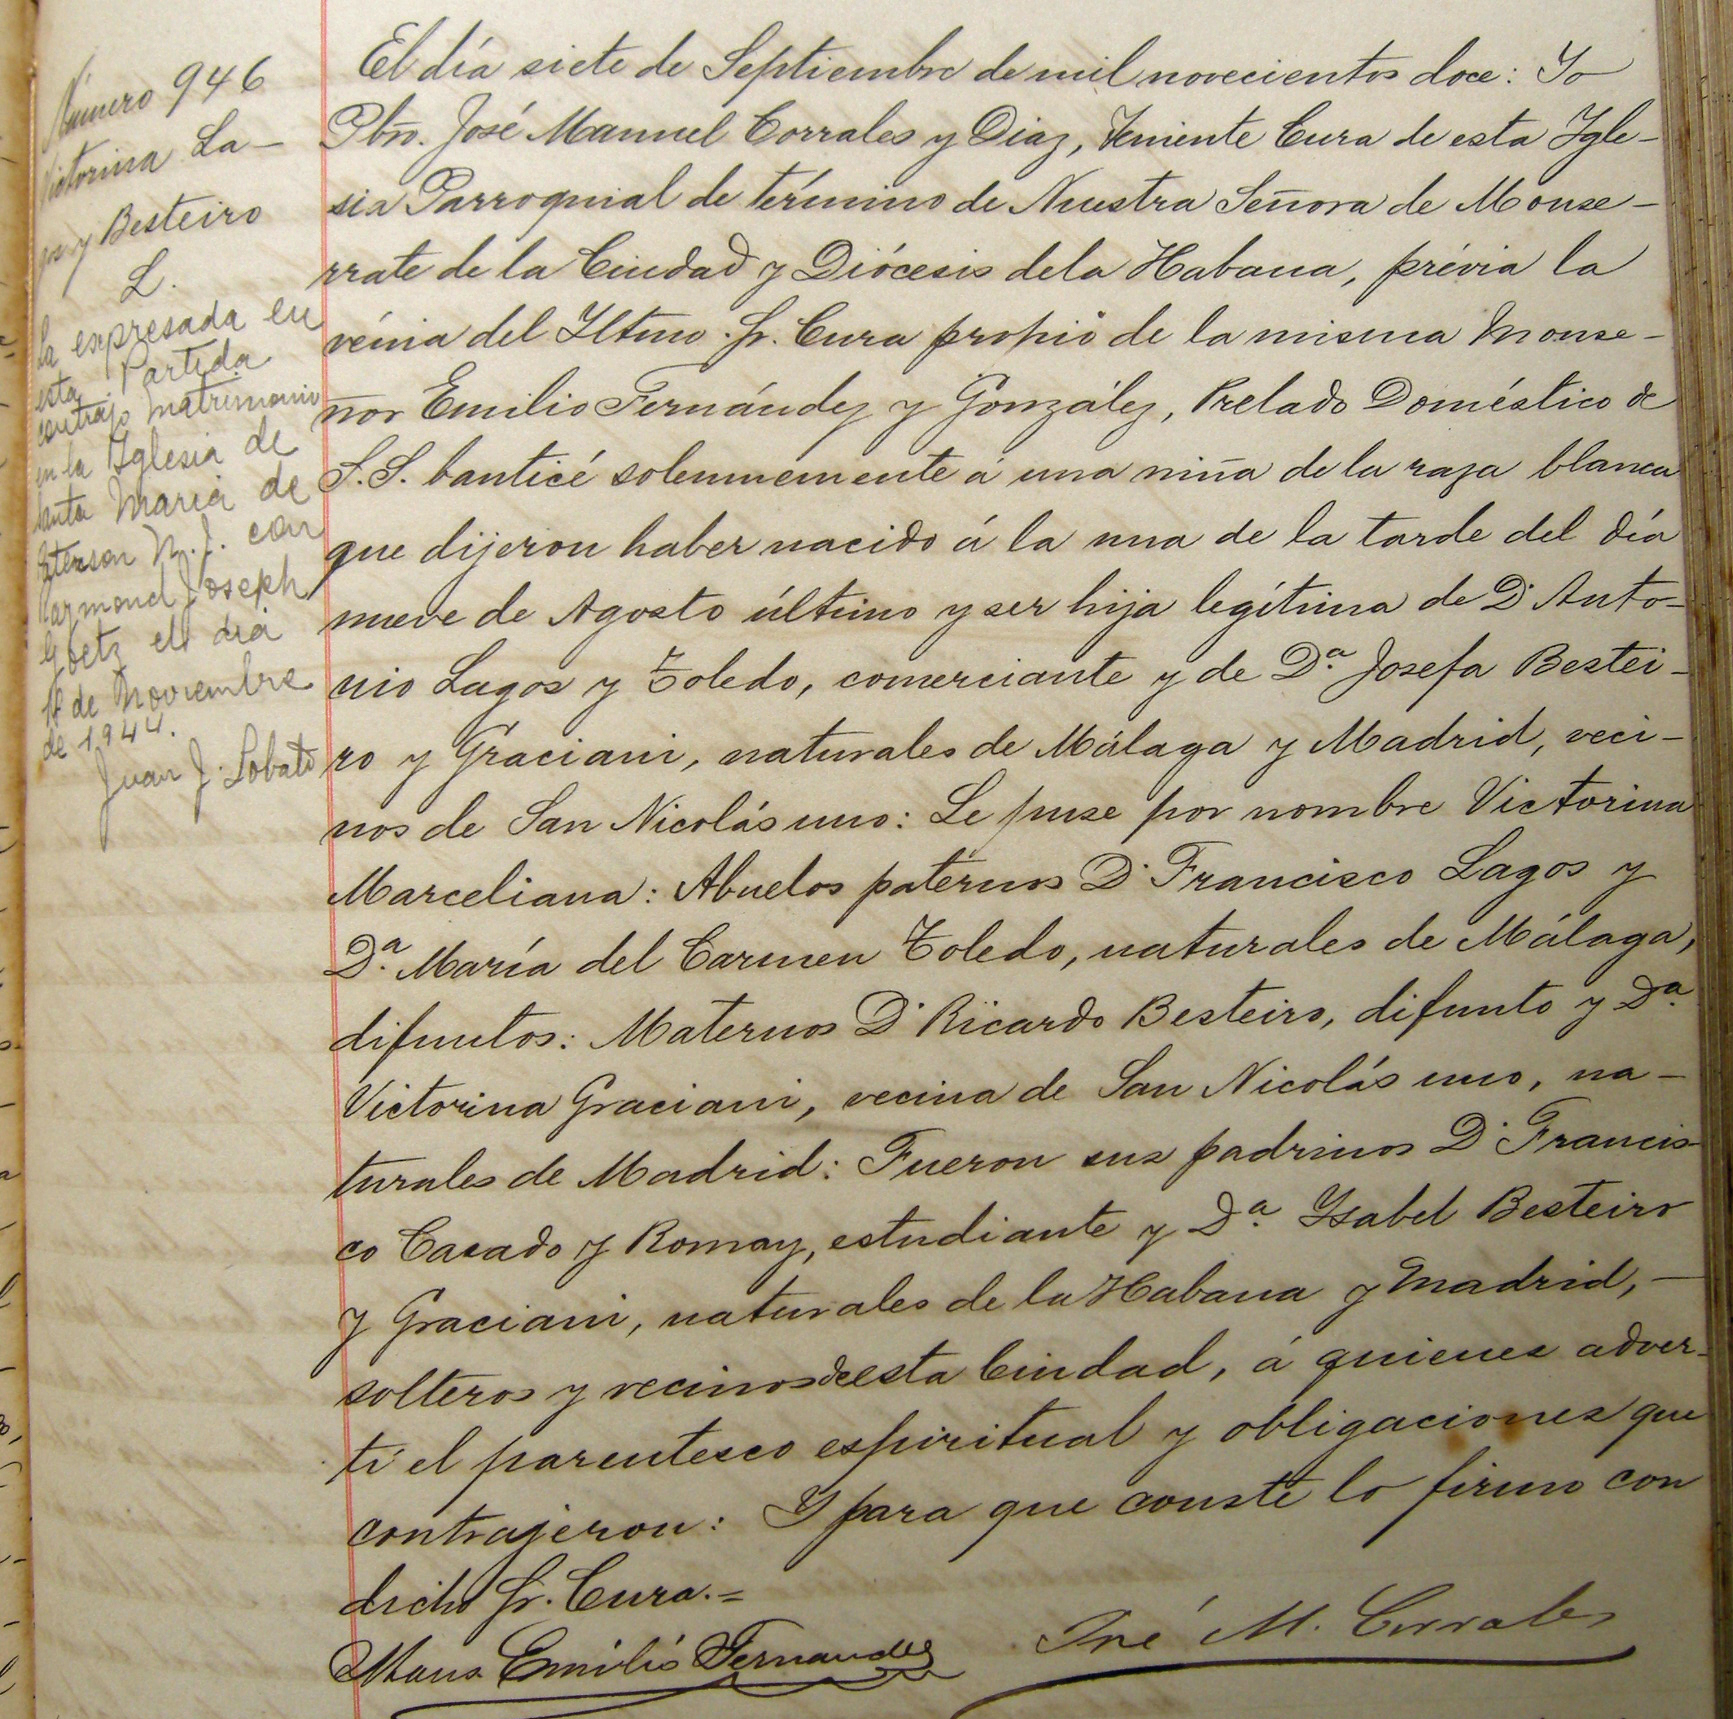 Número 946
Victorina La-
gos y Besteiro
L.
la expresada en
esta Partida
contrajo matrimonio
en la Iglesia de
Santa Maria de
Paterson N.J. con
Raymond Joseph
Goetz el dia
de Noviembre
de 1944.
Juan J. Lobato
El día siete de Septiembre de mil novecientos doce: Yo
Pbro. José Manuel Corrales y Diaz, Teniente Cura de esta Ygle-
sia Parroquial de término de Nuestra Señora de Monse-
rrate de la Ciudad y Diócesis de la Habana, prévia la
vénia del Iltmo. Sr. Cura propio de la misma Monse-
ñor Emilio Fernández y González, Prelado Doméstico de
S.S. bauticé solemnemente á una niña de la raza blanca
que dijeron haber nacido á la una de la tarde del día
nueve de Agosto último y ser hija legítima de D. Anto-
nio Lagos y Toledo, comerciante y de D.ª Josefa Bestei-
ro y Graciani, naturales de Málaga y Madrid, veci-
nos de San Nicolás uno: Le puse por nombre Victorina
Marceliana: Abuelos paternos D. Francisco Lagos y
D.ª María del Carmen Toledo, naturales de Málaga,
difuntos: Maternos D. Ricardo Besteiro, difunto y D.ª
Victorina Graciani, vecina de San Nicolás uno, na-
turales de Madrid: Fueron sus padrinos D. Francis-
co Casado y Romay, estudiante y D.ª Ysabel Besteiro
y Graciani, naturales de la Habana y Madrid, -
solteros y vecinos de esta Ciudad, á quienes adver-
tí el parentesco espiritual y obligaciones que
contrajeron: Y para que conste lo firmo con
dicho Sr. Cura.=
Mons. Emilio Fernandez
José M. Corrales